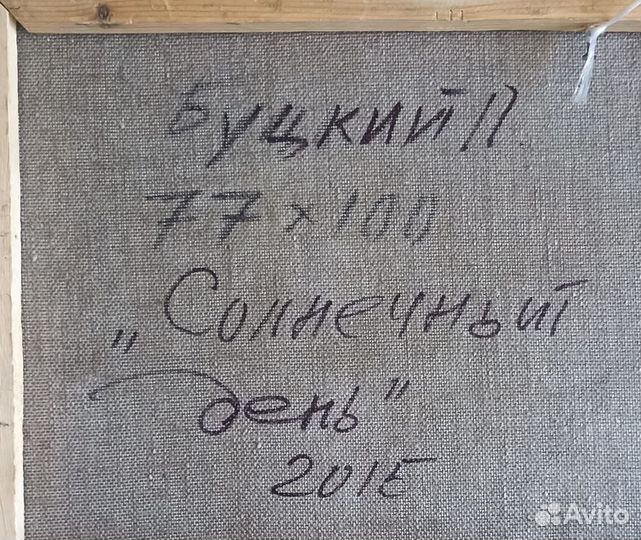 Буцкий П.
77 x 100
„Солнечный
день"
2015
Avito